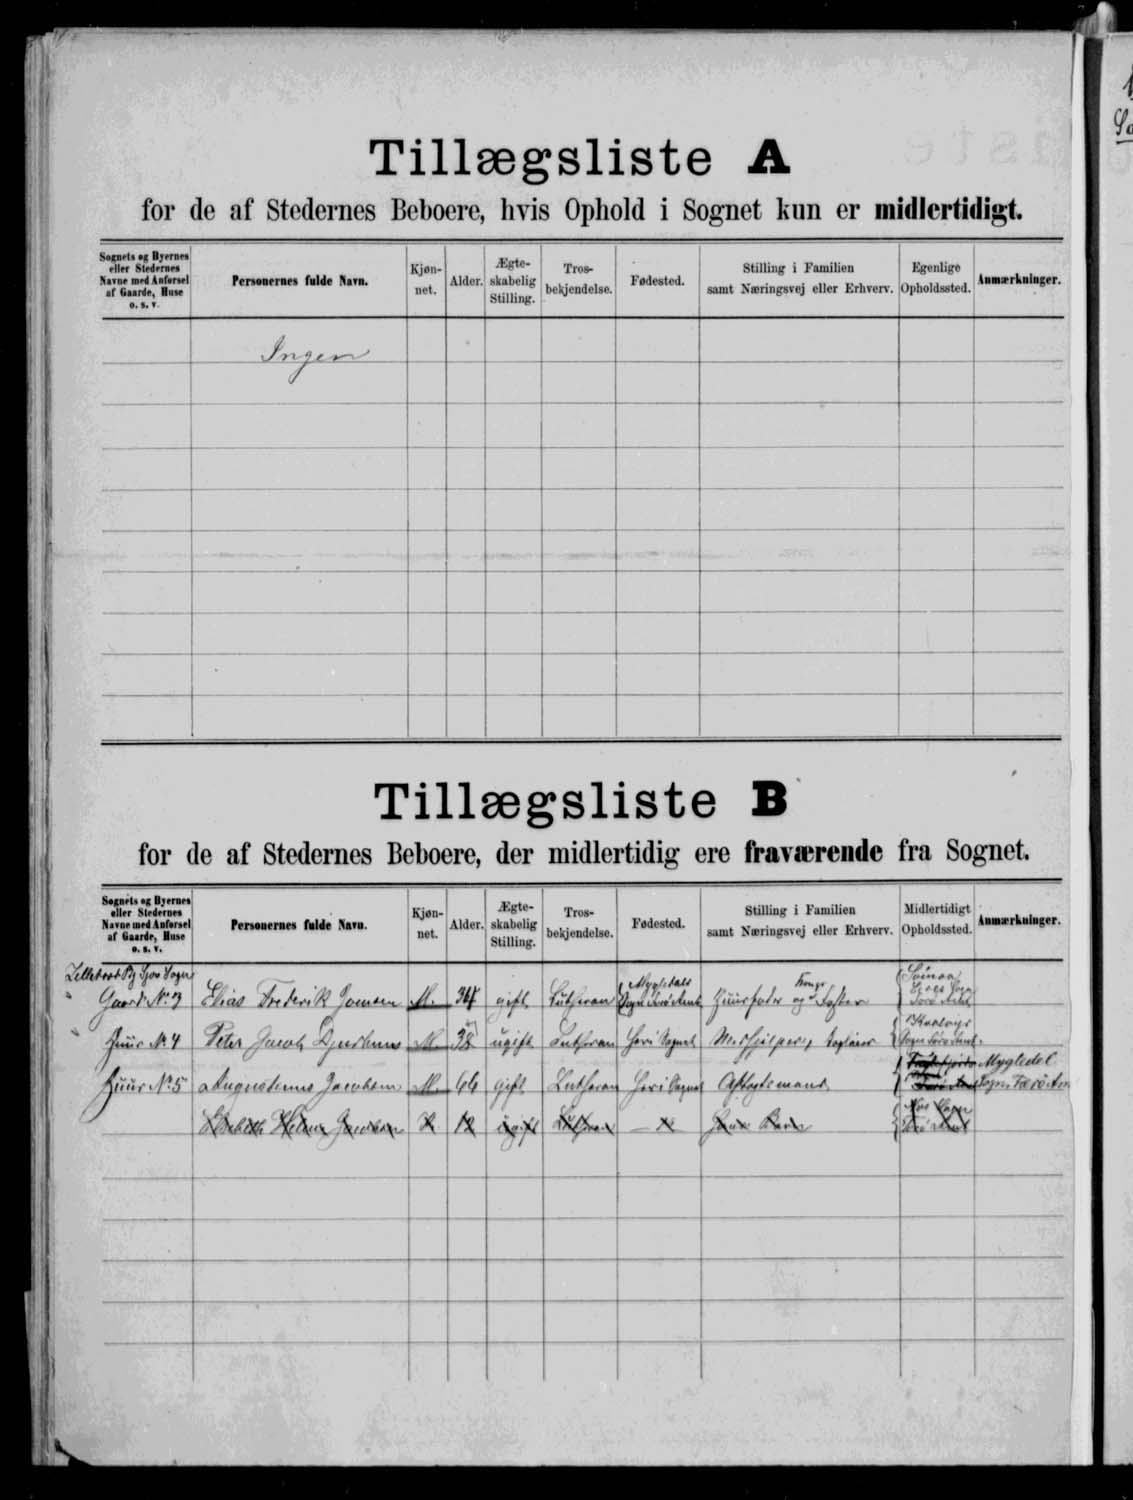 Tillægsliste A
for de af Stedernes Beboere, hvis Ophold i Sognet kun er midlertidigt.
Sognets og Byernes eller Stedernes Navne med Anførsel af Gaarde, Huse o. s. v.
Personernes fulde Navn.
Kjøn-net.
Alder.
Ægte-skabelig Stilling.
Tros-bekjendelse.
Fødested.
Stilling i Familien samt Næringsvej eller Erhverv.
Egenlige Opholdssted.
Anmærkninger.
Ingen
Tillægsliste B
for de af Stedernes Beboere, der midlertidig ere fraværende fra Sognet.
Sognets og Byernes eller Stedernes Navne med Anførsel af Gaarde, Huse o. s. v.
Personernes fulde Navn.
Kjøn-net.
Alder.
Ægte-skabelig Stilling.
Tros-bekjendelse.
Fødested.
Stilling i Familien samt Næringsvej eller Erhverv.
Midlertidigt Opholdssted.
Anmærkninger.
Gaard No 3 Elias Frederik Joensen M. 34 gift Lutheran Mygledals Sogn Færö Amt Huusfader og Fæster
Huus No 4 Peter Jacob Djurhuus M. 38 ugift Lutheran Her i Sognet
Huus No 5 Augustinus Jacobsen M. 66 gift Lutheran Her i Sognet Aftægtsmand Mygledal Sogn Færö Amt
Jacobsen K. 12 ugift Lutheran